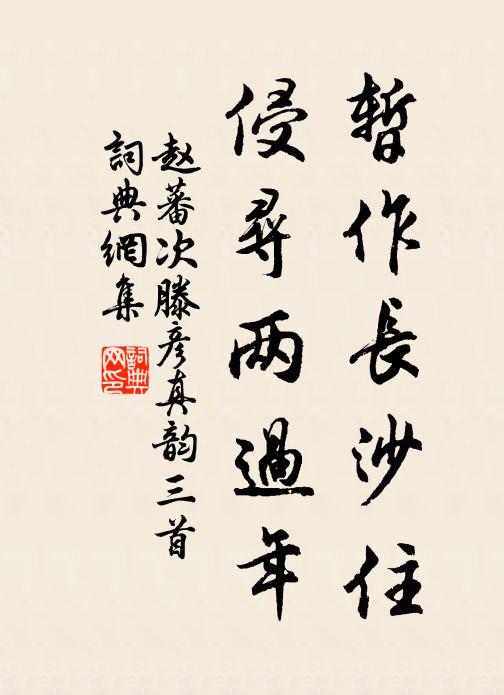 暫作長沙住
侵尋两過年
赵蕃次滕彦真韵三首
詞典網集
詞典网印